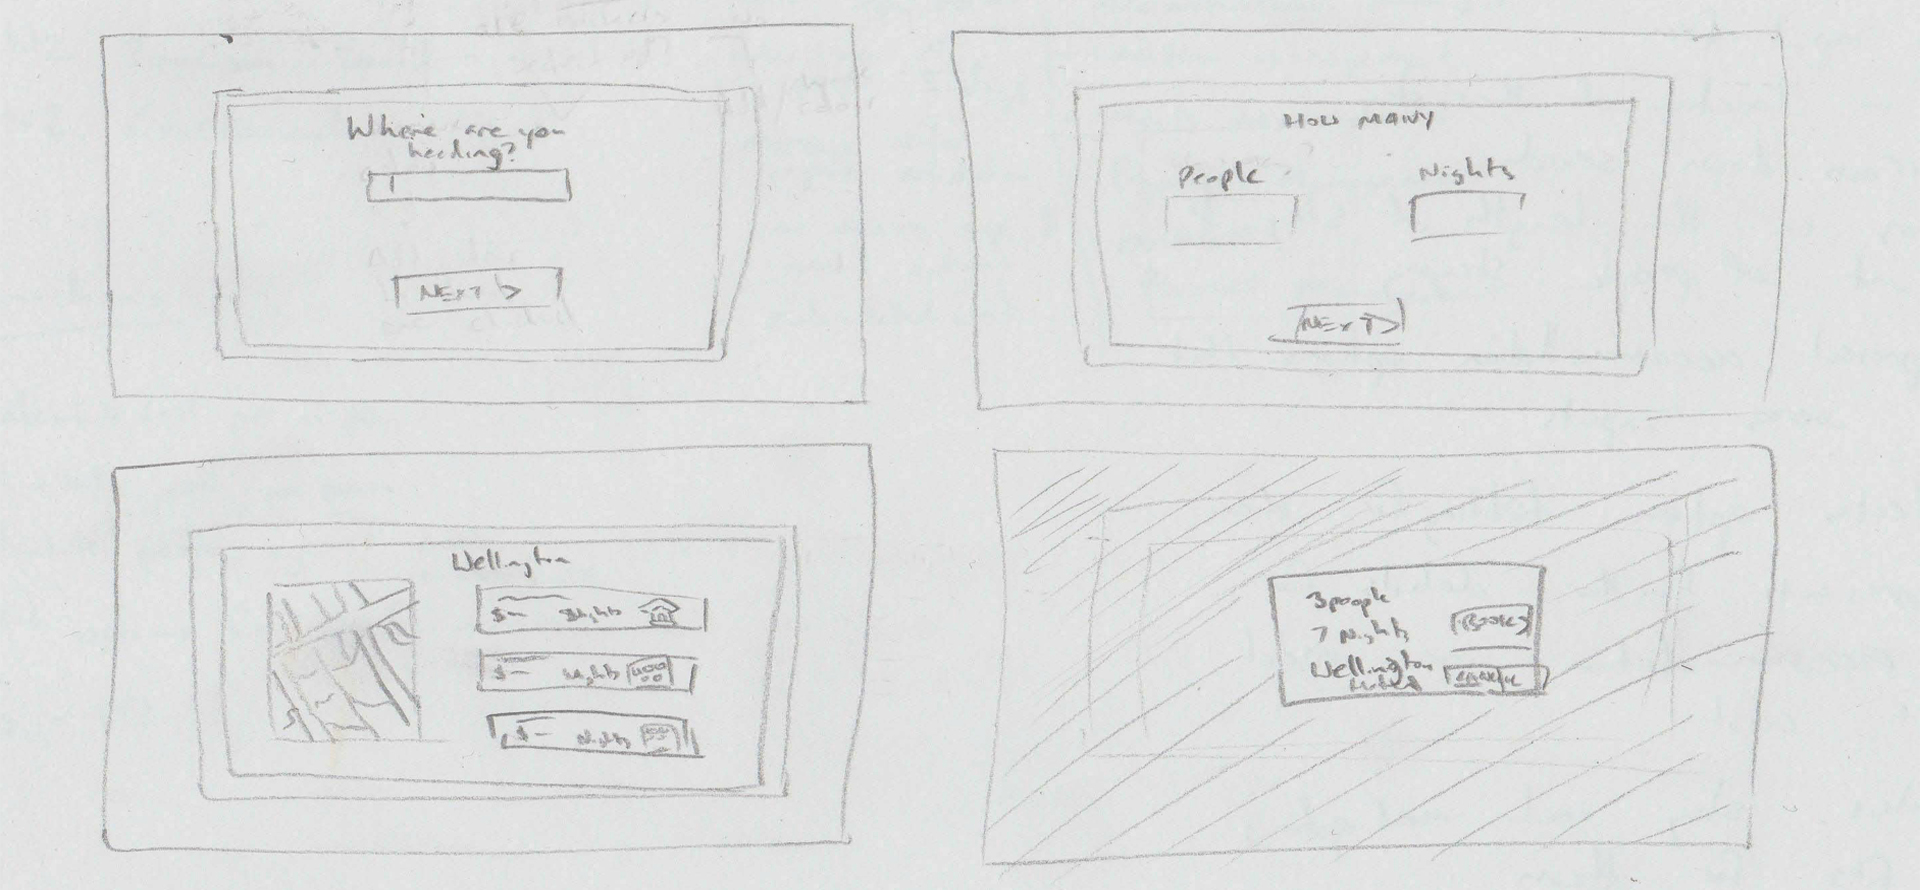 Where are you
heading?
NEXT >
HOW MANY
People
Nights
NEXT >
Wellington
$ — Nights
$ — Nights
$ — Nights
3 people
7 Nights
BOOK
Wellington